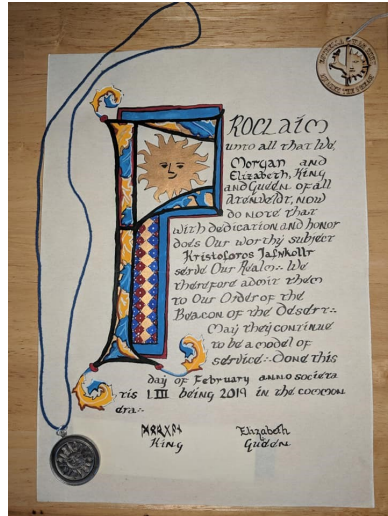 PROCLAIM
unto all that We,
Morgan and
Elizabeth, King
and Queen of all
Atenveldt, now
do note that
with dedication and honor
does Our worthy subject
Kristoforos Jafnkollr
serve Our Realm. We
therefore admit them
to Our Order of the
Beacon of the Desert.
May they continue
to be a model of
service. Done this
day of February anno societa
tis LIII being 2019 in the common
era.
ᛗᛟᚱᚷᚨᚾ Elizabeth
King Queen